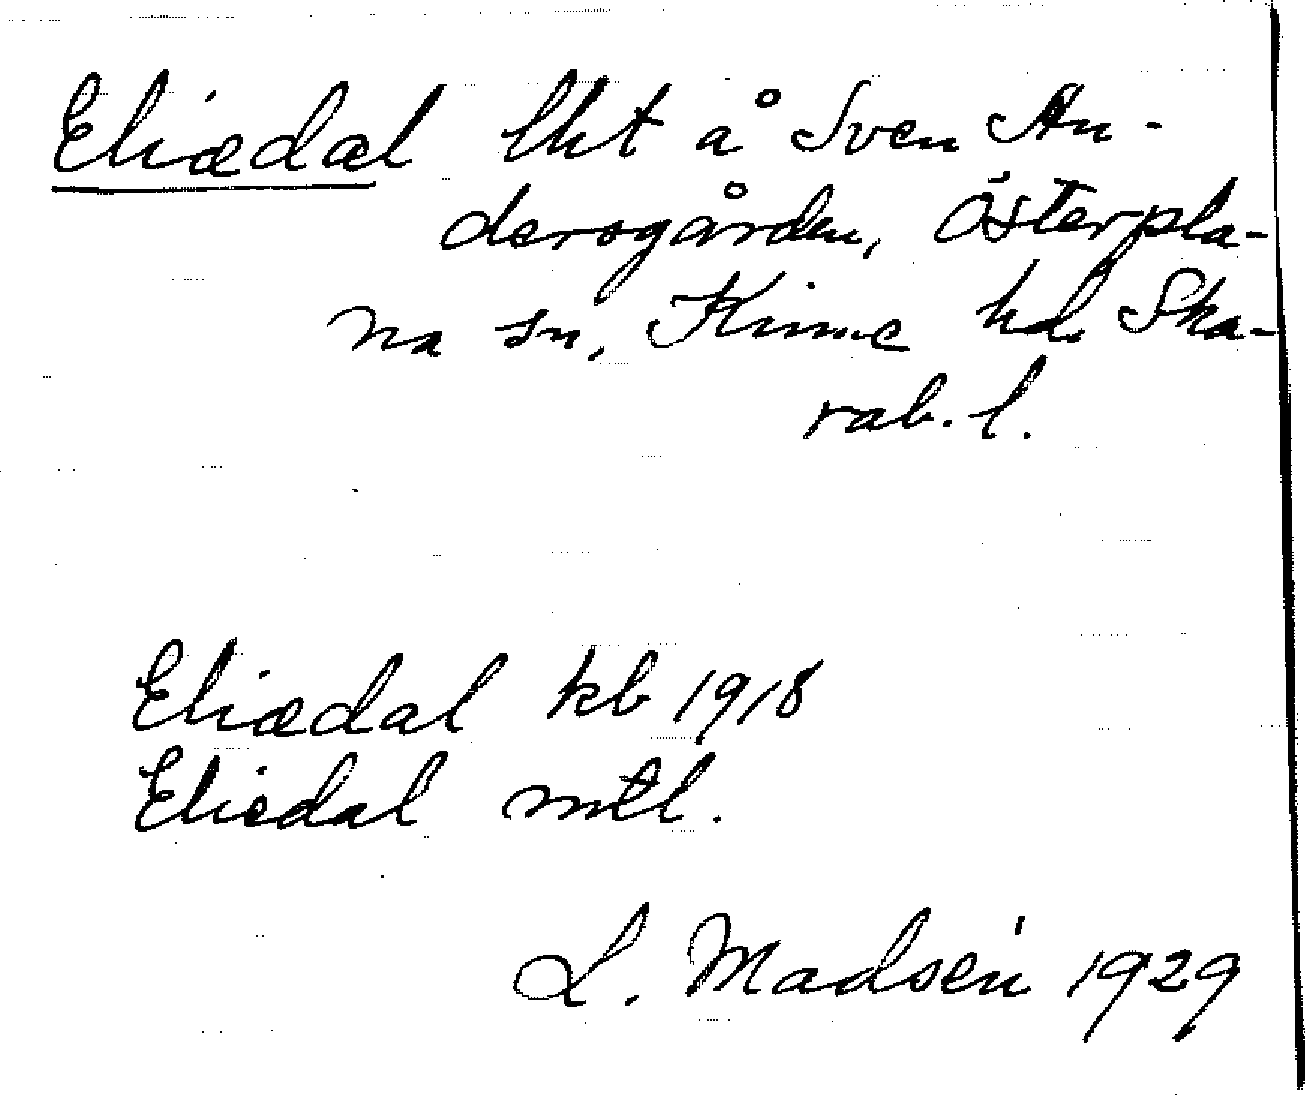 Eliædal lht å Sven An-
dersgården, Österpla-
na sn, Kinne hd. Ska-
rab. l.
Eliædal kb 1918
Eliedal mtl.
L. Madsén 1929